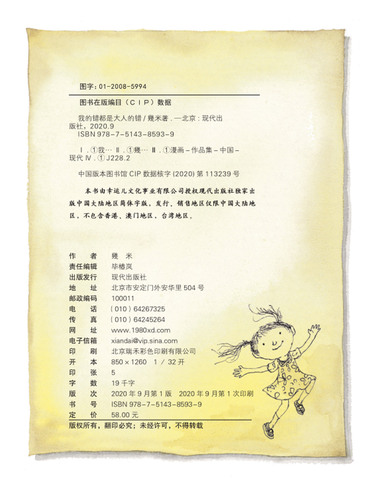 图字：01-2008-5994
图书在版编目（CIP）数据
我的错都是大人的错 / 幾米著 . —北京 : 现代出
版社，2020.9
ISBN 978-7-5143-8593-9
Ⅰ . ①我… Ⅱ . ①幾… Ⅲ . ①漫画 – 作品集 – 中国 –
现代 Ⅳ . ① J228.2
中国版本图书馆 CIP 数据核字 (2020) 第 113239 号
本书由幸运儿文化事业有限公司授权现代出版社独家出
版中国大陆地区简体字版。发行、销售地区仅限中国大陆地
区，不包含香港、澳门地区，台湾地区。
作 者 幾 米
责任编辑 毕椿岚
出版发行 现代出版社
地 址 北京市安定门外安华里 504 号
邮政编码 100011
电 话 （010）64267325
传 真 （010）64245264
网 址 www.1980xd.com
电子信箱 xiandai@vip.sina.com
印 刷 北京瑞禾彩色印刷有限公司
开 本 850×1260 1 / 32 开
印 张 5
字 数 19 千字
版 次 2020 年 9 月第 1 版 2020 年 9 月第 1 次印刷
书 号 ISBN 978-7-5143-8593-9
定 价 58.00 元
版权所有，翻印必究；未经许可，不得转载